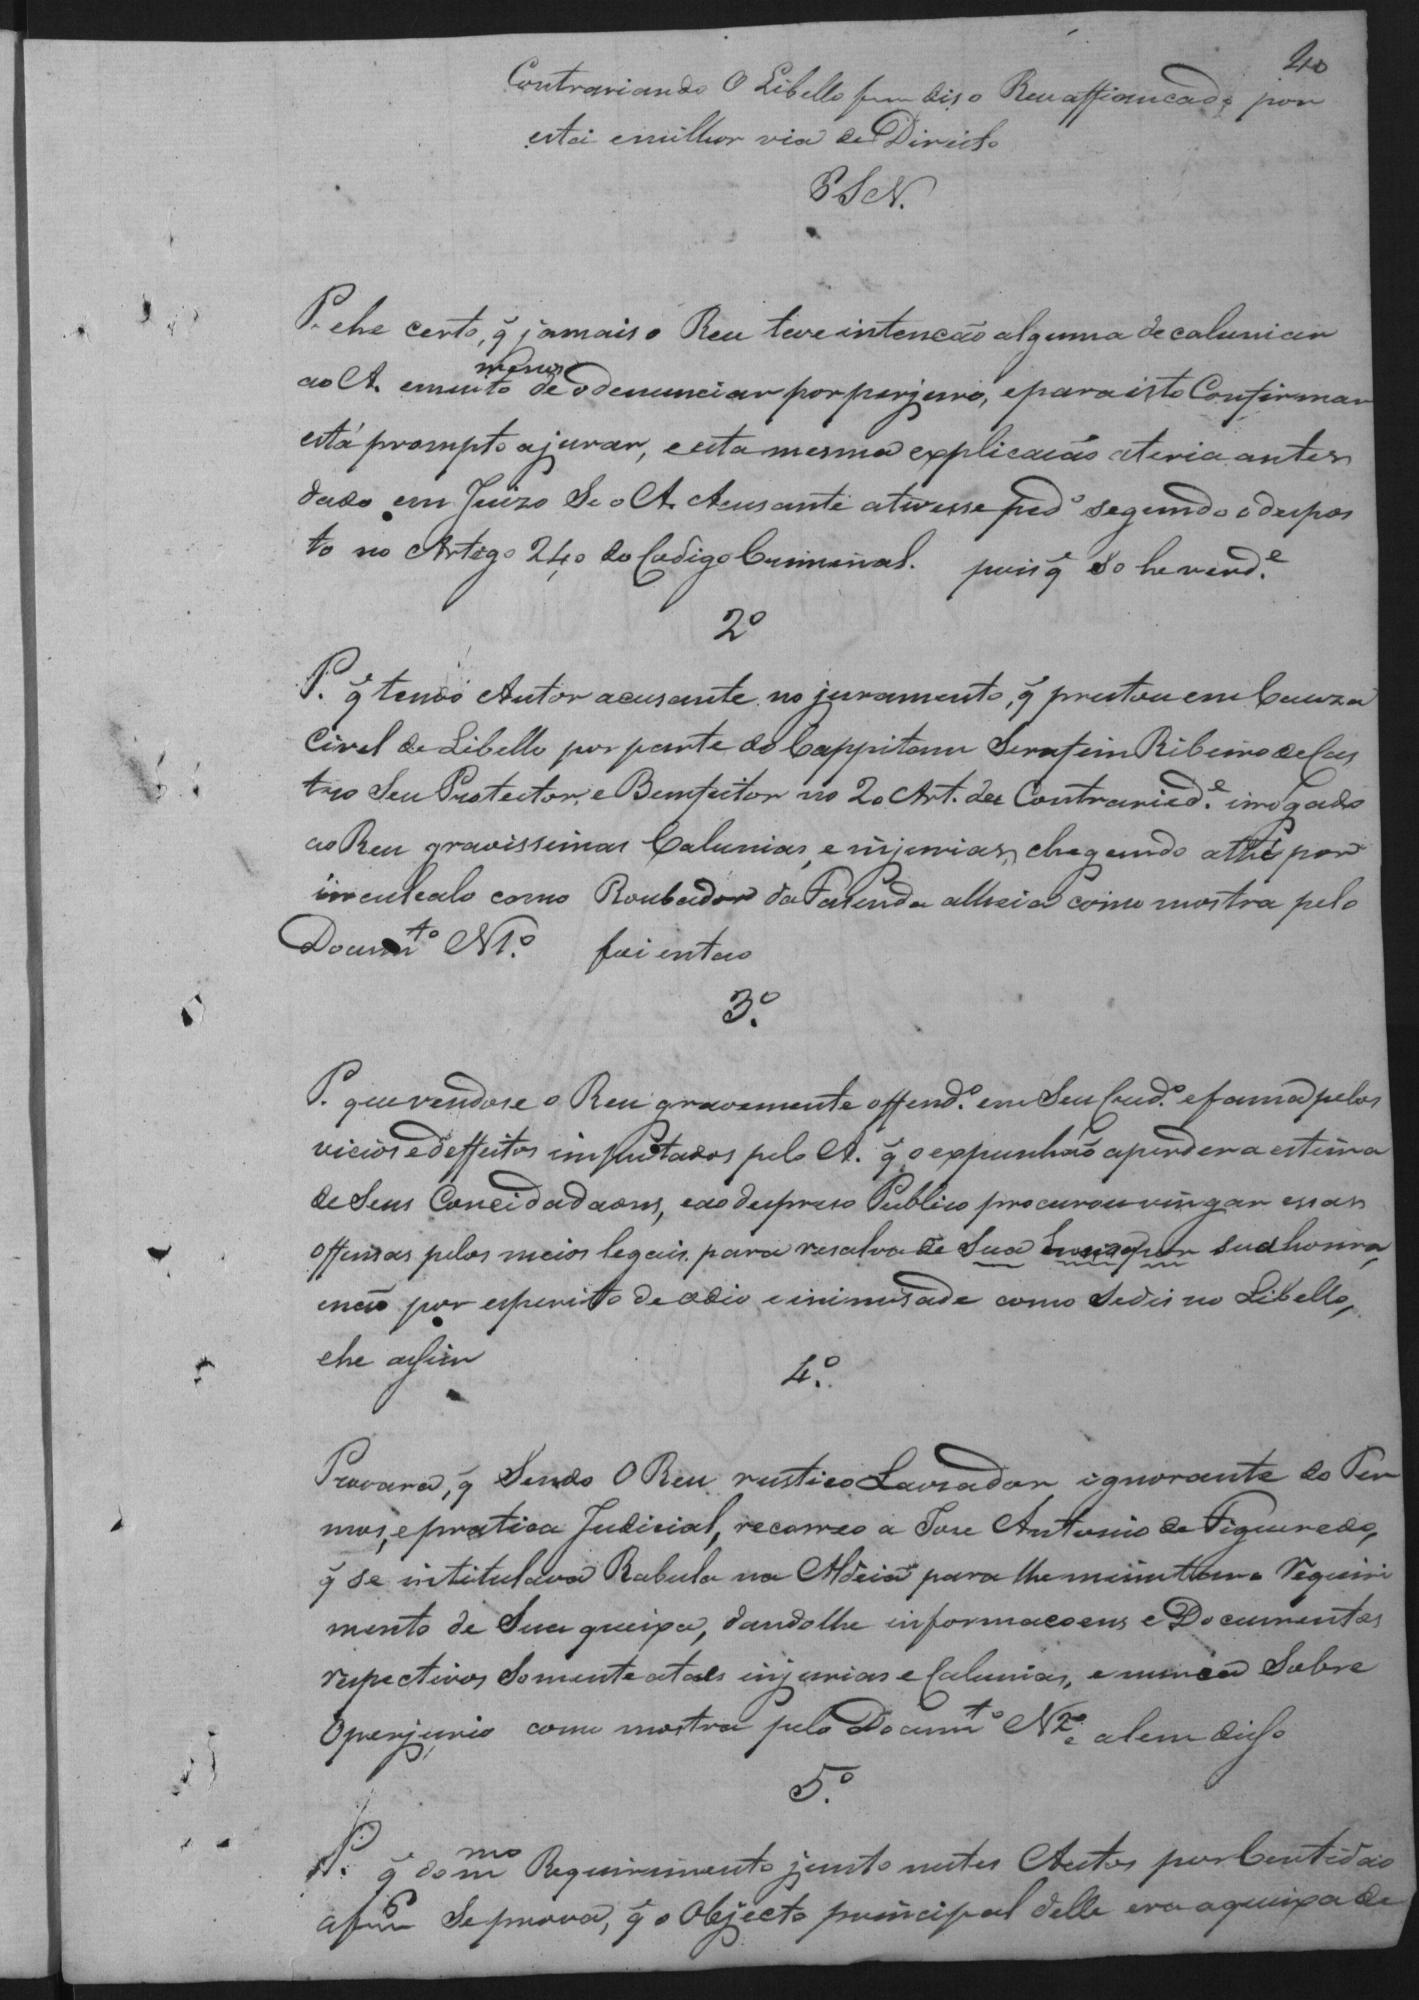 40
Contrariando O Libello diz o Reu affiancado por
esta e milhor via de Direito
P S N.
P. ehe certo, q̃ jamais o Reu teve intencão alguma de caluniar
ao A. emuito menos de o denunciar por perjuro, epara isto Confirmar
está prompto ajurar, eesta mesma explicacão ateria antes
dado em Juizo Se o A. Acusante ativesse ped.º segundo o despos
to no Artigo 240 do Codigo Criminal. pois q̃ so he verd.e
2º
P. q̃ tendo Autor acusante no juramento, q̃ prestou em Cauza
Civel de Libello por parte do Cappitam Serafim Ribeiro de Cas
tro Seu Protector, e Bemfeitor no 2o Art. da Contraried.e irrogado
ao Reu gravissimas Calunias, e injurias, chegando athé por
inculcalo como Roubador da Fasenda alheia como mostra pelo
Docum.to N1.º foi entao
3.º
P. que vendose o Reu gravemente offend.º em Seu Cred.º e fama pelos
vicios e deffeitos imputados pelo A. q̃ o expunhão aperder a estima
de Seus Concidadaons, eao despreso Publico procurou vingar essas
offensas pelos meios legais para resalva de Sua sua honra,
enão por esperito de odio e inimisade como Sedis no Libello,
ehe assim
4.º
Provara, q̃ Sendo O Reu rustico Lavrador ignorante do Ter
mos, epratica Judicial, recorreo a Jose Antonio de Figueredo,
q̃ se intitulava Rabula na Aldeia para lhe minutar o Requiri
mento de Sua queixa, dandolhe informacoens e Documentos
respectivos Somente atais injurias e Calunias, e nunca Sobre
Operjurio como mostra pelo Docum.to N2º e alem disso
5.º
P. q̃ do m.mo Requirimento junto nestes Autos por Certidão
af 6 Se prova, q̃ o Objecto principal delle era aqueixa de